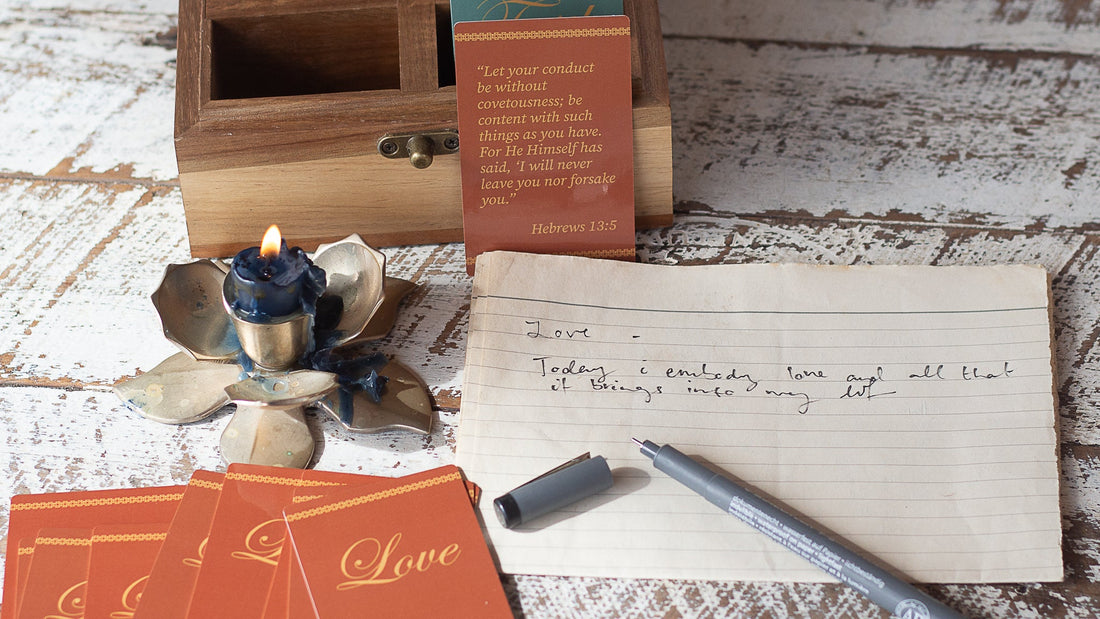 “Let your conduct
be without
covetousness; be
content with such
things as you have.
For He Himself has
said, ‘I will never
leave you nor forsake
you.”
Hebrews 13:5
Love -
Today i embody love and all that
it brings into my
Love